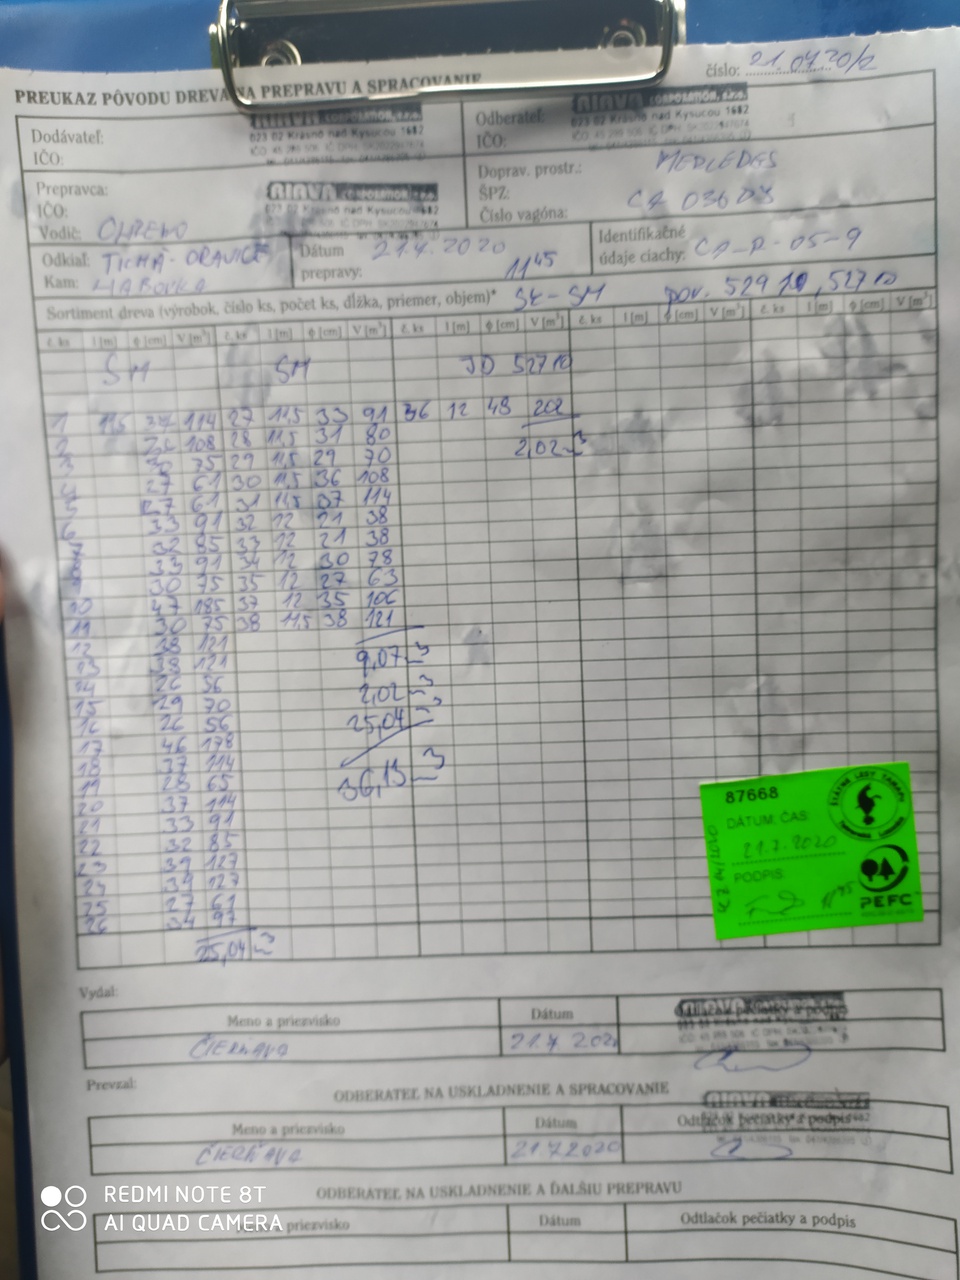 číslo: 21.0420/2
PREUKAZ PÔVODU DREVA NA PREPRAVU A SPRACOVANIE
Dodávateľ:
023 02 Krásno nad Kysucou 1682
IČO:
Odberateľ: AINVA CORPORATION, s.r.o.
023 02 Krásno nad Kysucou 1682
IČO:
Prepravca:
023 02 Krásno nad Kysucou 1682
IČO:
Vodič:
Doprav. prostr.: MERCEDES
ŠPZ:
Číslo vagóna:
Odkiaľ: TICHÁ-
Kam:
Dátum prepravy: 21.4.2020
11 45
Identifikačné údaje ciachy: CA-R-05-9
Sortiment dreva (výrobok, číslo ks, počet ks, dĺžka, priemer, objem)* SK-SM pov.
č. ks l [m] ϕ [cm] V [m³] č. ks l [m] ϕ [cm] V [m³] č. ks l [m] ϕ [cm] V [m³] č. ks l [m] ϕ [cm] V [m³] č. ks l [m] ϕ [cm] V [m³]
SM SM JD 52710
1 11,5 37 114 27 11,5 33 91 36 12 48 202
2 36 108 28 11,5 31 80 2,02 m³
3 30 75 29 11,5 29 70
4 27 61 30 11,5 36 108
5 27 61 31 11,5 37 114
6 33 91 32 12 21 38
7 32 85 33 12 21 38
33 91 34 12 30 78
30 75 35 12 27 63
10 47 185 37 12 35 106
11 30 75 38 11,5 38 121
12 38 121
13 38 121 9,07 m³
14 26 56
15 29 70 2,02 m³
16 26 56 25,04 m³
17 46 178
18 37 114
19 28 65 36,13 m³
20 37 114
21 33 91
22 32 85
23 39 127
39 127
25 27 61
26 34 97
25,04 m³
87668
DÁTUM, ČAS:
21.7.2020
PODPIS:
PEFC
Vydal:
Meno a priezvisko Dátum Odtlačok pečiatky a podpis
ČIERŇAVA 21.4 2020
Prevzal:
ODBERATEĽ NA USKLADNENIE A SPRACOVANIE
Meno a priezvisko Dátum Odtlačok pečiatky a podpis
ČIERŇAVA 21.4.2020
ODBERATEĽ NA USKLADNENIE A ĎALŠIU PREPRAVU
Meno a priezvisko Dátum Odtlačok pečiatky a podpis
REDMI NOTE 8T
AI QUAD CAMERA